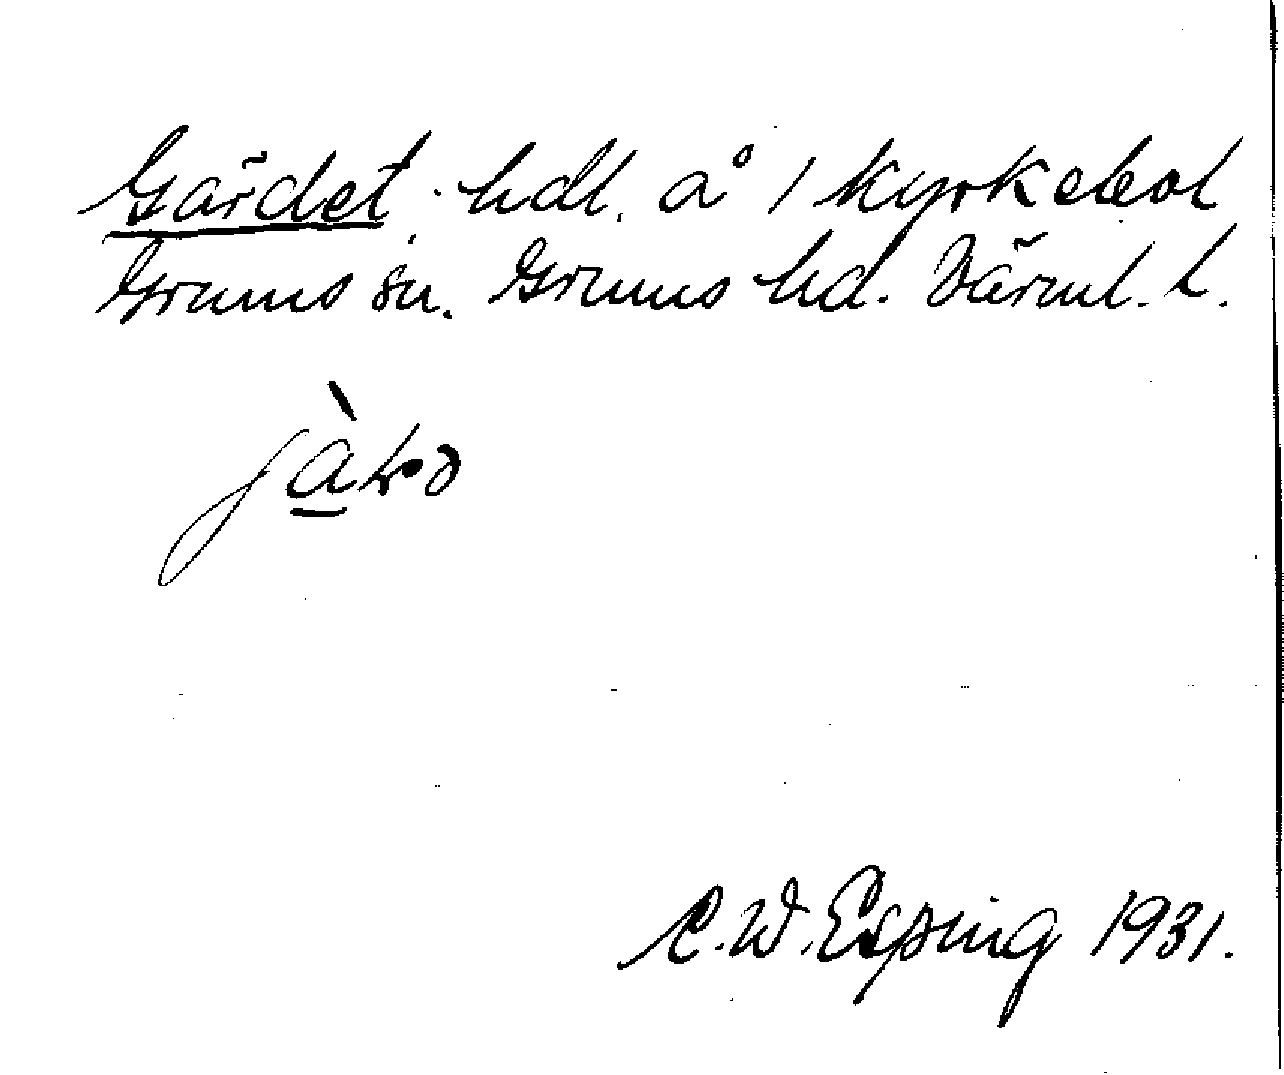 Gärdet. hdl. å 1 Kyrkebol
Grums sn. Grums hd. Värml. l.
C.W. Esping 1931.